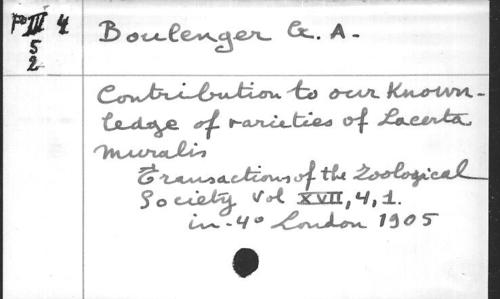 Fo III 4
5
2
Boulenger G. A.-
Contribution to our Known-
ledge of varieties of Lacerta
muralis
Transactions of the Zoological
Society Vol XVII, 4, 1.
in-4º London 1905